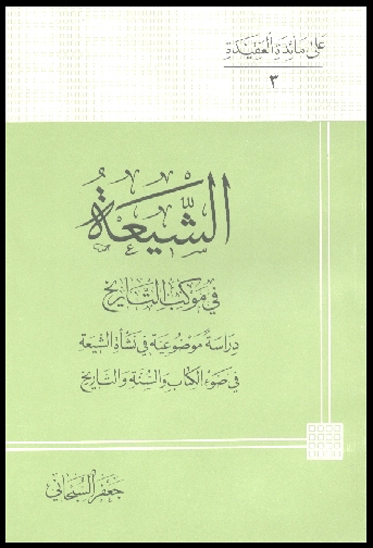 على مائدة العقيدة
٣
الشِّيعَةُ
في موكب التاريخ
دراسة موضوعية في نشأة الشيعة
في ضوء الكتاب والسنة والتاريخ
جعفر السبحاني